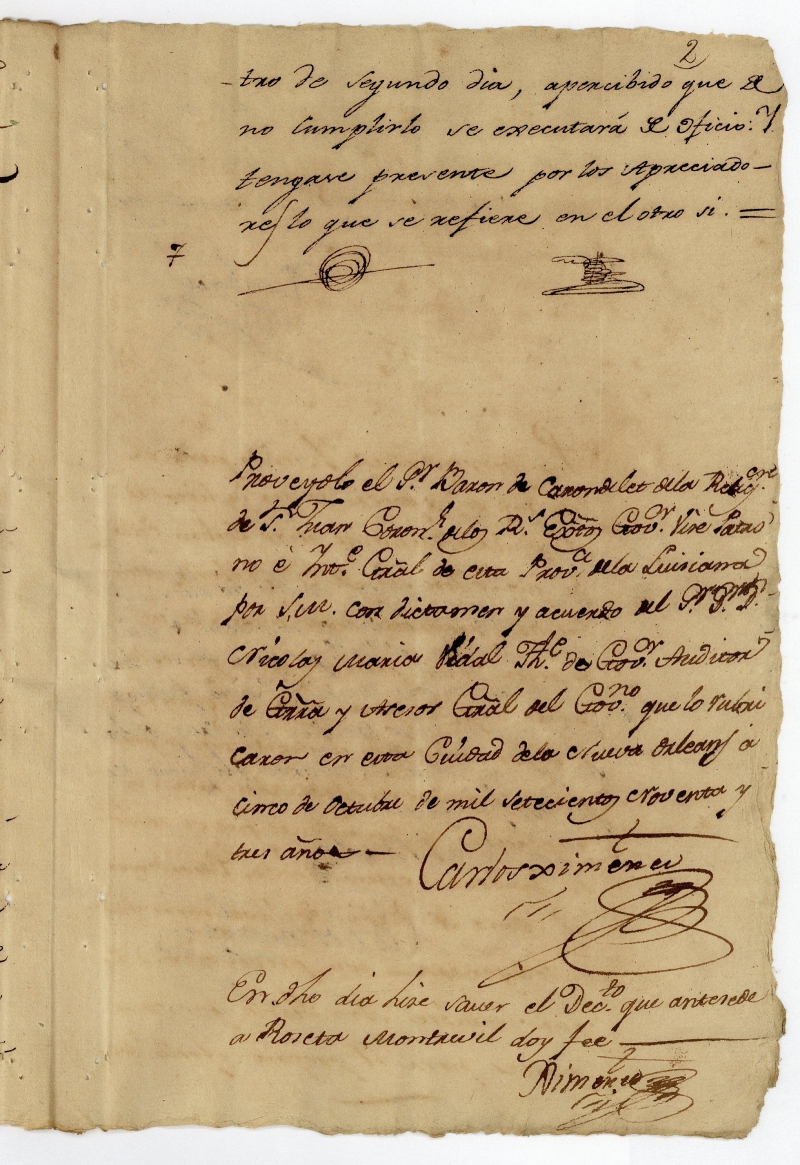 2
tro de segundo dia, apercibido que de
no cumplirlo se executará de oficio: Y
tengase presente por los Apreciado-
res lo que se refiere en el otro si. =
7
Proveyolo el S.r Baron de Carondelet de la Relig.on
de S.n Juan Coron.l de los R.s Exttos Gov.r Vize Patro
no é Int.e Gral de esta Prov.a de la Luisiana
por S.M. con dictamen y acuerdo del S.r D.n
Nicolas Maria Vidal Th.e de Gov.r Auditor
de Grra y Asesor Gral del Gov.no que lo rubri
caron en esta Ciudad de la Nueva Orleans a
cinco de Octubre de mil setecientos noventa y
tres años
Carlos Ximenes
En dho dia hise saver el Dec.to que antesede
a Roseta Montrevil doy fee
Ximenes